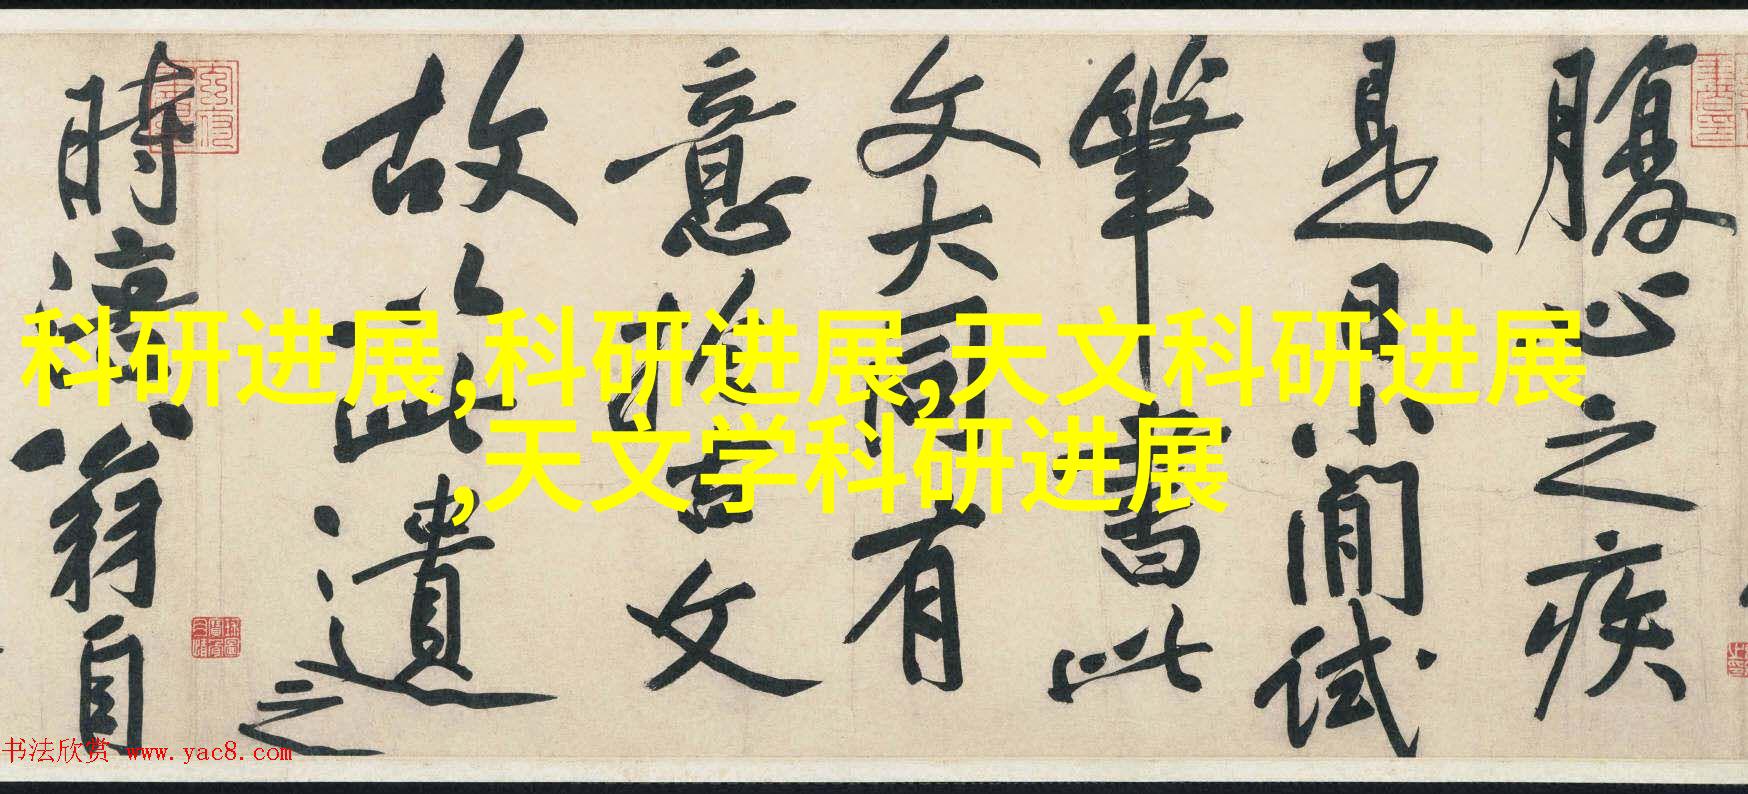 腹心之疾
是日小閒試
筆書此
文大同有
意於古文
故此遺
之
時涪翁自
科研进展,科研进展,天文科研进展
,天文学科研进展
书法欣赏 www.yac8.com